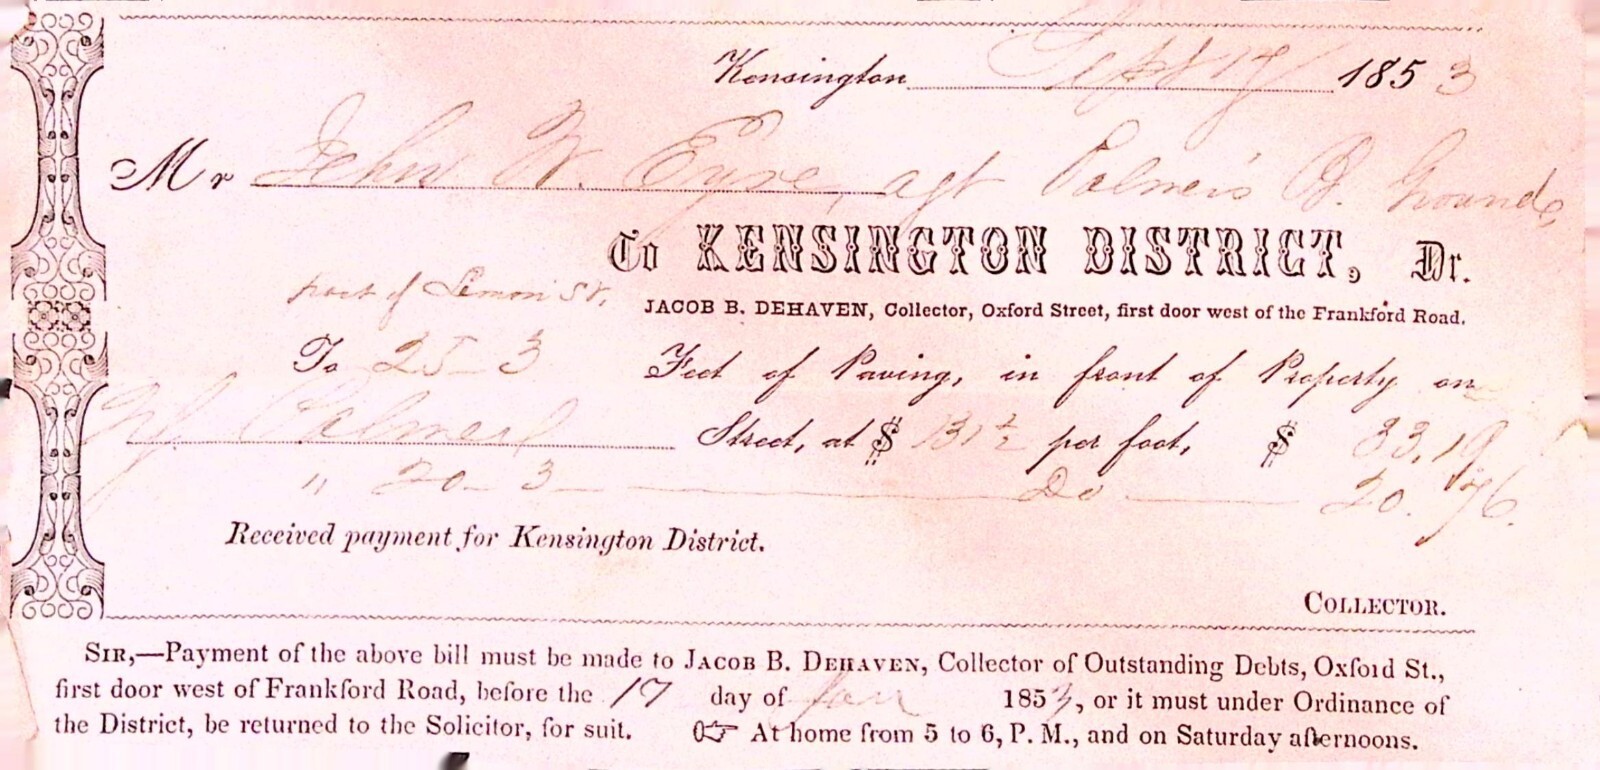 Kensington Sept 17 1853
Mr John W. Eyre, agt Palmer's B. Grounds,
To KENSINGTON DISTRICT, Dr.
part of Lemon St.
JACOB B. DEHAVEN, Collector, Oxford Street, first door west of the Frankford Road.
To 25-3 Feet of Paving, in front of Property on
Palmer Street, at $ 131½ per foot, $ 33,19
" 20-3 Do 20.76.
Received payment for Kensington District.
COLLECTOR.
SIR,—Payment of the above bill must be made to JACOB B. DEHAVEN, Collector of Outstanding Debts, Oxford St.,
first door west of Frankford Road, before the 17 day of Jan 185, or it must under Ordinance of
the District, be returned to the Solicitor, for suit. ☞ At home from 5 to 6, P. M., and on Saturday afternoons.